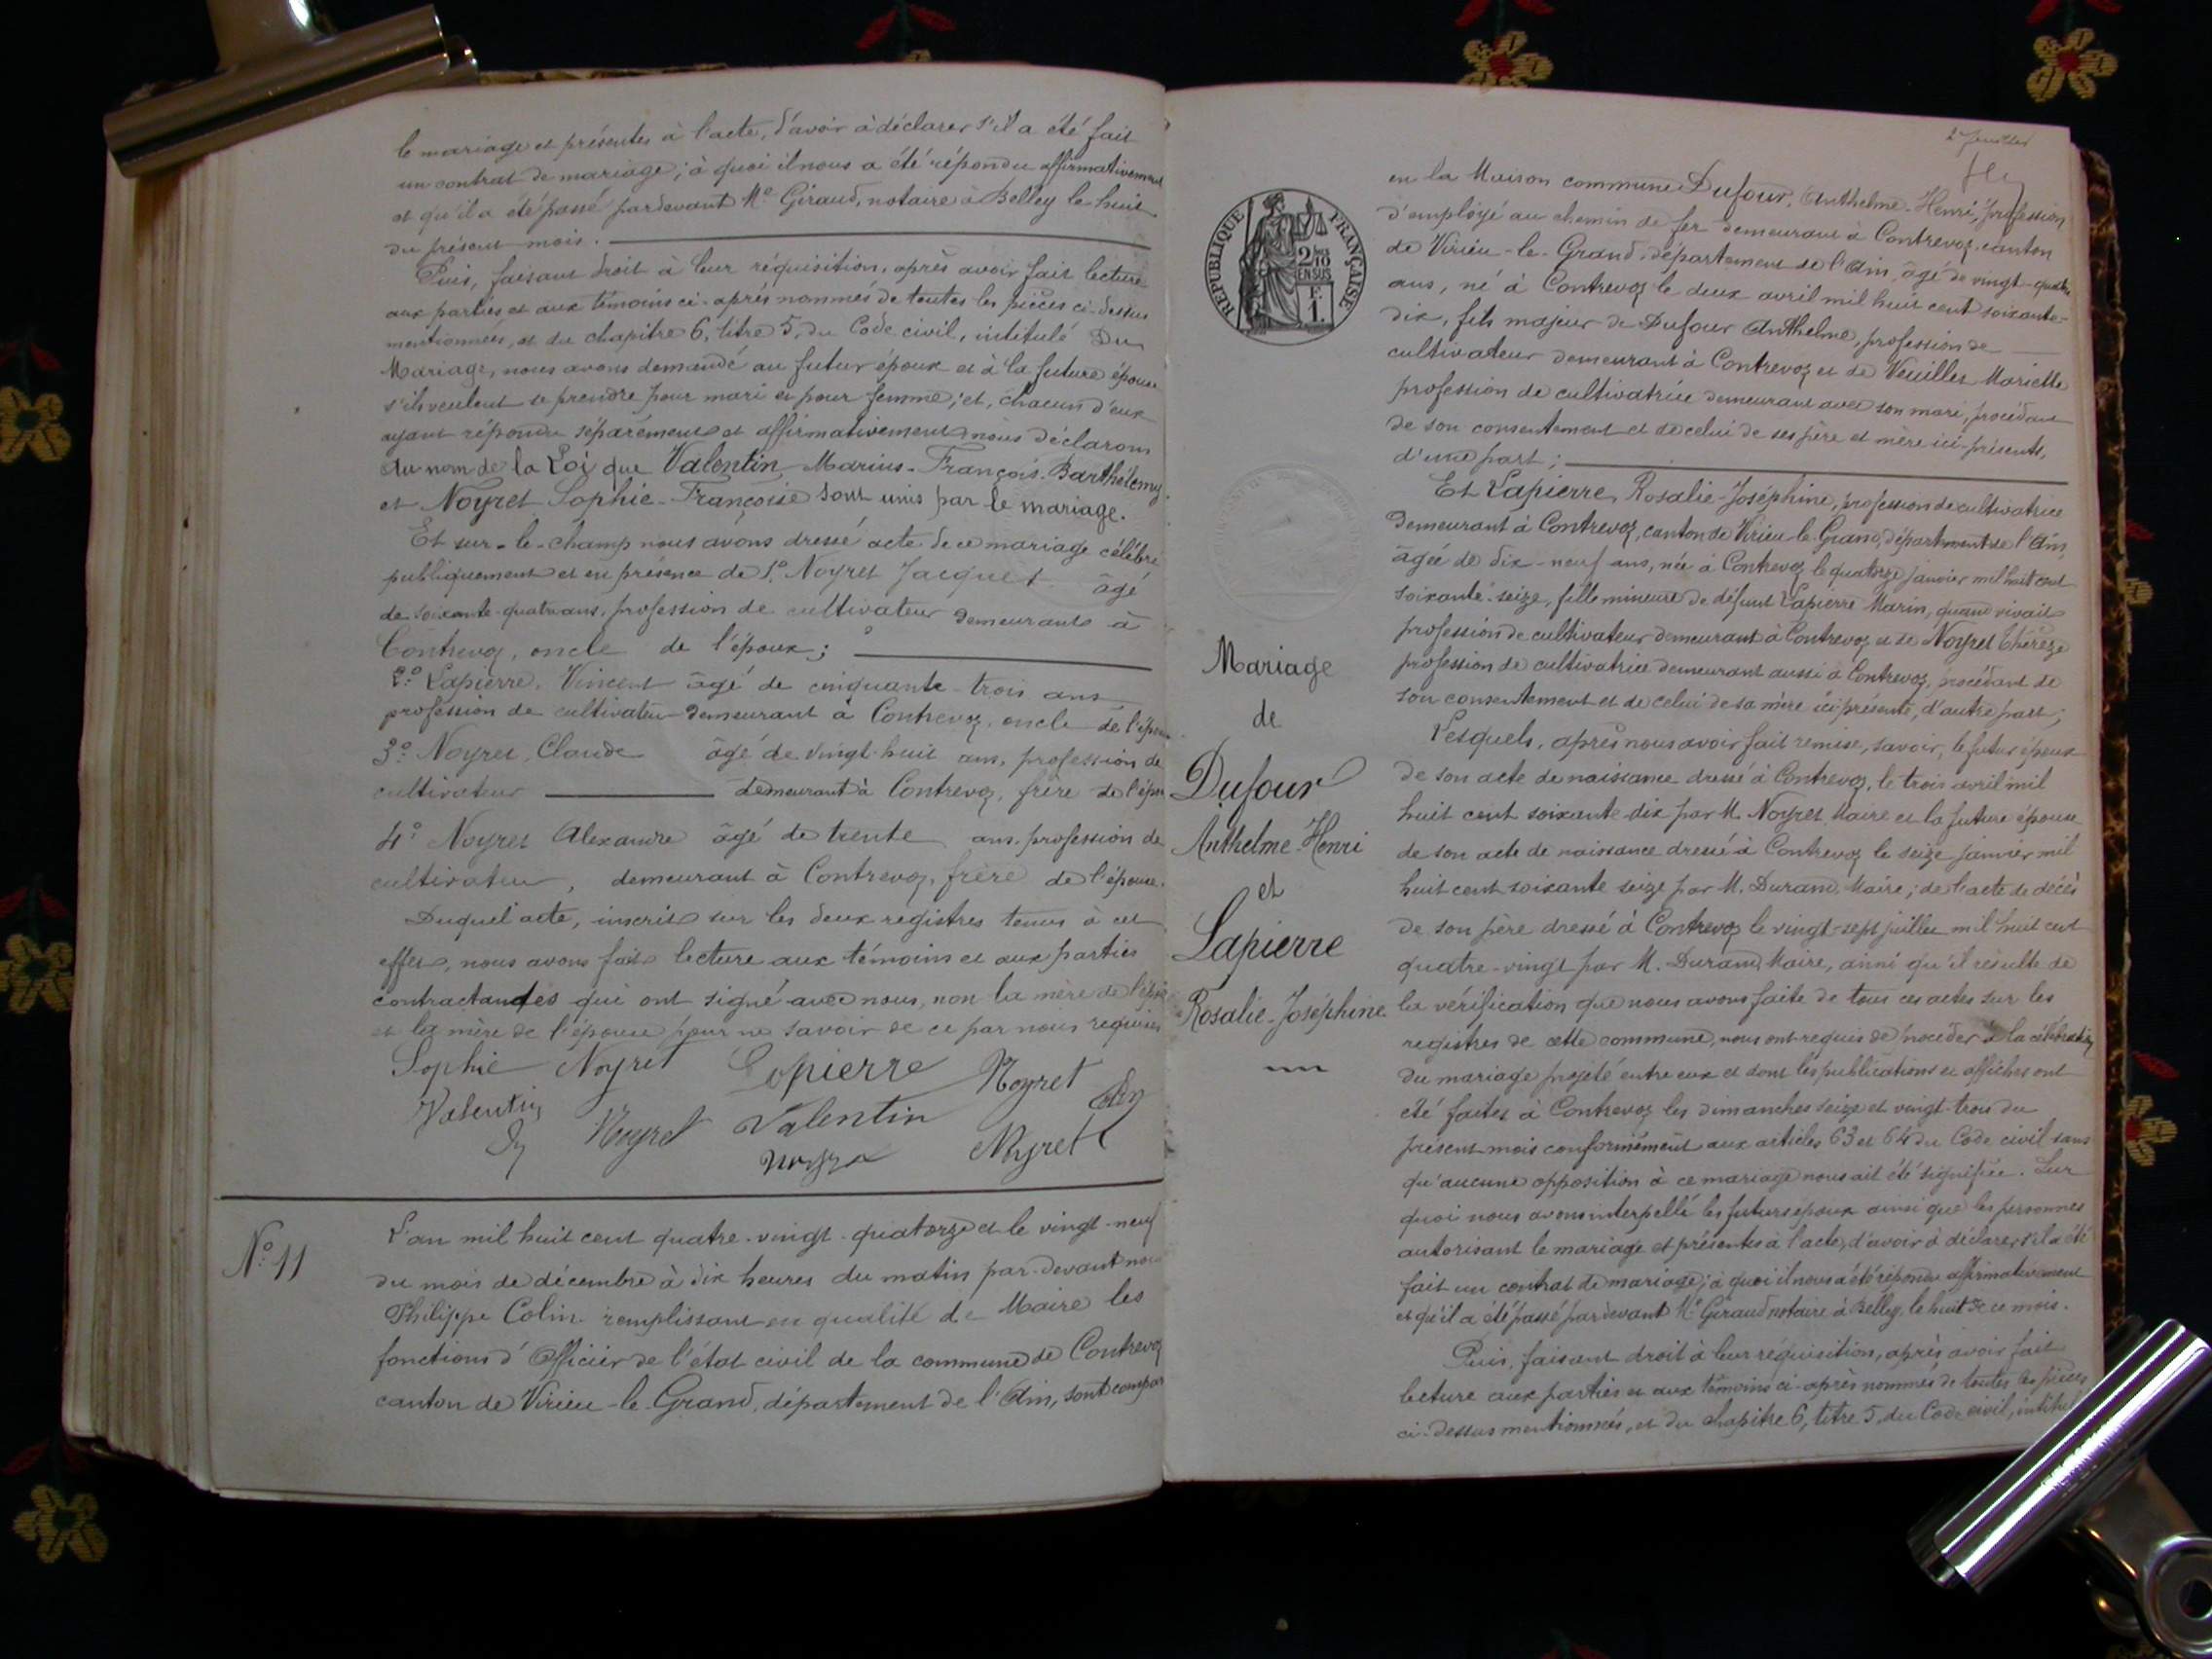 le mariage et présentes à l'acte, d'avoir à déclarer s'il a été fait
un contrat de mariage; à quoi il nous a été répondu affirmativement
et qu'il a été passé pardevant Me Giraud, notaire à Belley le huit
du présent mois.
Puis, faisant droit à leur réquisition, après avoir fait lecture
aux parties et aux témoins ci-après nommés de toutes les pièces ci-dessus
mentionnées, et du chapitre 6, titre 5, du Code civil, intitulé Du
Mariage, nous avons demandé au futur époux et à la future épouse
s'ils veulent se prendre pour mari et pour femme; et, chacun d'eux
ayant répondu séparément et affirmativement, nous déclarons
au nom de la Loi que Valentin Marius-François-Barthélemy
et Noyret Sophie-Françoise sont unis par le mariage.
Et sur-le-champ nous avons dressé acte de ce mariage célébré
publiquement et en présence de 1° Noyret Jacques âgé
de soixante-quatre ans, profession de cultivateur demeurant à
Contrevoz, oncle de l'époux;
2° Lapierre, Vincent âgé de cinquante-trois ans
profession de cultivateur demeurant à Contrevoz, oncle de l'époux
3° Noyret, Claude âgé de vingt-huit ans, profession de
cultivateur demeurant à Contrevoz, frère de l'épouse
4° Noyret Alexandre âgé de trente ans, profession de
cultivateur, demeurant à Contrevoz, frère de l'épouse.
Duquel acte, inscrit sur les deux registres tenus à cet
effet, nous avons fait lecture aux témoins et aux parties
contractantes qui ont signé avec nous, non la mère de
et la mère de l'épouse pour ne savoir de ce par nous requises
Sophie Noyret Lapierre Noyret
Valentin Noyret Valentin
Noyret
N° 11
L'an mil huit cent quatre-vingt-quatorze et le vingt-neuf
du mois de décembre à dix heures du matin par-devant nous
Philippe Colin remplissant en qualité de Maire les
fonctions d'Officier de l'état civil de la commune de Contrevoz
canton de Virieu-le-Grand, département de l'Ain, sont compar
REPUBLIQUE FRANÇAISE
2/10 EN SUS
F. 1.
Mariage
de
Dufour
Anthelme-Henri
et
Lapierre
Rosalie-Joséphine
en la Maison commune Dufour, Anthelme-Henri, profession
d'employé au chemin de fer demeurant à Contrevoz, canton
de Virieu-le-Grand, département de l'Ain, âgé de vingt-quatre
ans, né à Contrevoz le deux avril mil huit cent soixante-
dix, fils majeur de Dufour Anthelme, profession de
cultivateur demeurant à Contrevoz et de Veuillet Mariette
profession de cultivatrice demeurant avec son mari, procédant
de son consentement et de celui de ses père et mère ici présents,
d'une part;
Et Lapierre, Rosalie-Joséphine, profession de cultivatrice
demeurant à Contrevoz, canton de Virieu-le-Grand, département de l'Ain,
âgée de dix-neuf ans, née à Contrevoz le quatorze janvier mil huit cent
soixante-seize, fille mineure de défunt Lapierre Marin, quand vivait
profession de cultivateur demeurant à Contrevoz et de Noyret Thérèze
profession de cultivatrice demeurant aussi à Contrevoz, procédant de
son consentement et de celui de sa mère ici présente, d'autre part;
Lesquels, après nous avoir fait remise, savoir, le futur époux
de son acte de naissance dressé à Contrevoz, le trois avril mil
huit cent soixante-dix par M. Noyret Maire et la future épouse
de son acte de naissance dressé à Contrevoz le seize janvier mil
huit cent soixante seize par M. Durand, Maire; de l'acte de décès
de son père dressé à Contrevoz le vingt-sept juillet mil huit cent
quatre-vingt par M. Durand, Maire, ainsi qu'il résulte de
la vérification que nous avons faite de tous ces actes sur les
registres de cette commune, nous ont requis de procéder à la célébration
du mariage projeté entre eux et dont les publications et affiches ont
été faites à Contrevoz les dimanches seize et vingt-trois du
présent mois conformément aux articles 63 et 64 du Code civil sans
qu'aucune opposition à ce mariage nous ait été signifiée. Sur
quoi nous avons interpellé les futurs époux ainsi que les personnes
autorisant le mariage et présentes à l'acte, d'avoir à déclarer s'il a été
fait un contrat de mariage; à quoi il nous a été répondu affirmativement
et qu'il a été passé pardevant Me Giraud notaire à Belley, le huit de ce mois.
Puis, faisant droit à leur réquisition, après avoir fait
lecture aux parties et aux témoins ci-après nommés de toutes les pièces
ci-dessus mentionnées, et du chapitre 6, titre 5, du Code civil, intitul